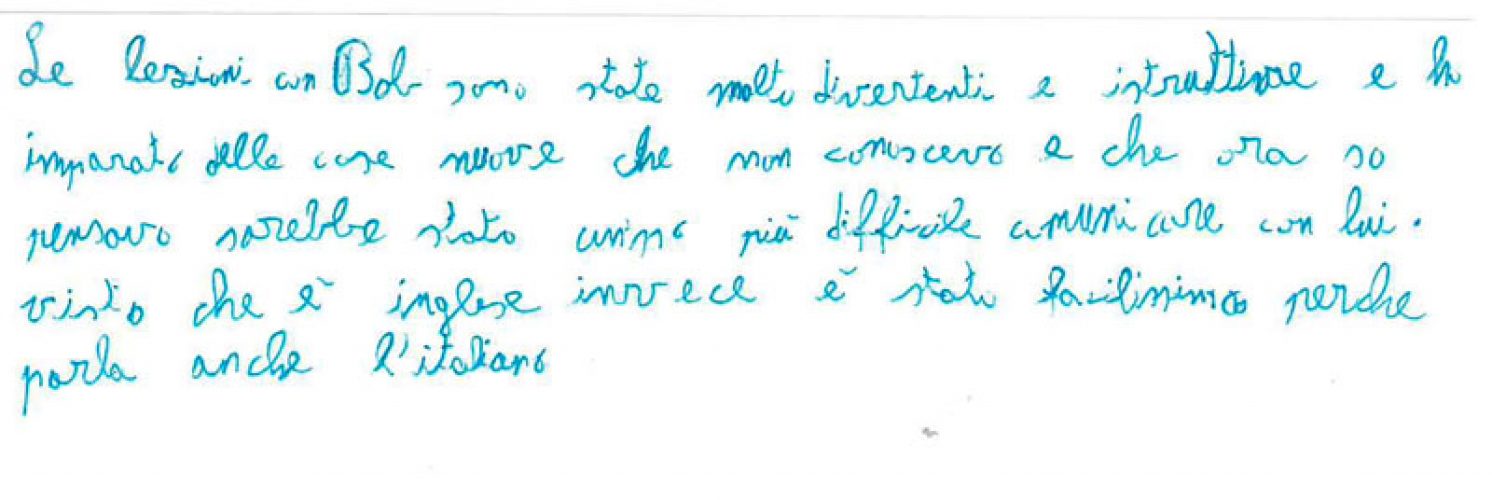 Le lezioni con Bob sono state molto divertenti e istruttive e ho
imparato delle cose nuove che non conoscevo e che ora so
pensavo sarebbe stato più difficile comunicare con lui.
visto che è inglese invece è stato facilissimo perche
parla anche l'italiano